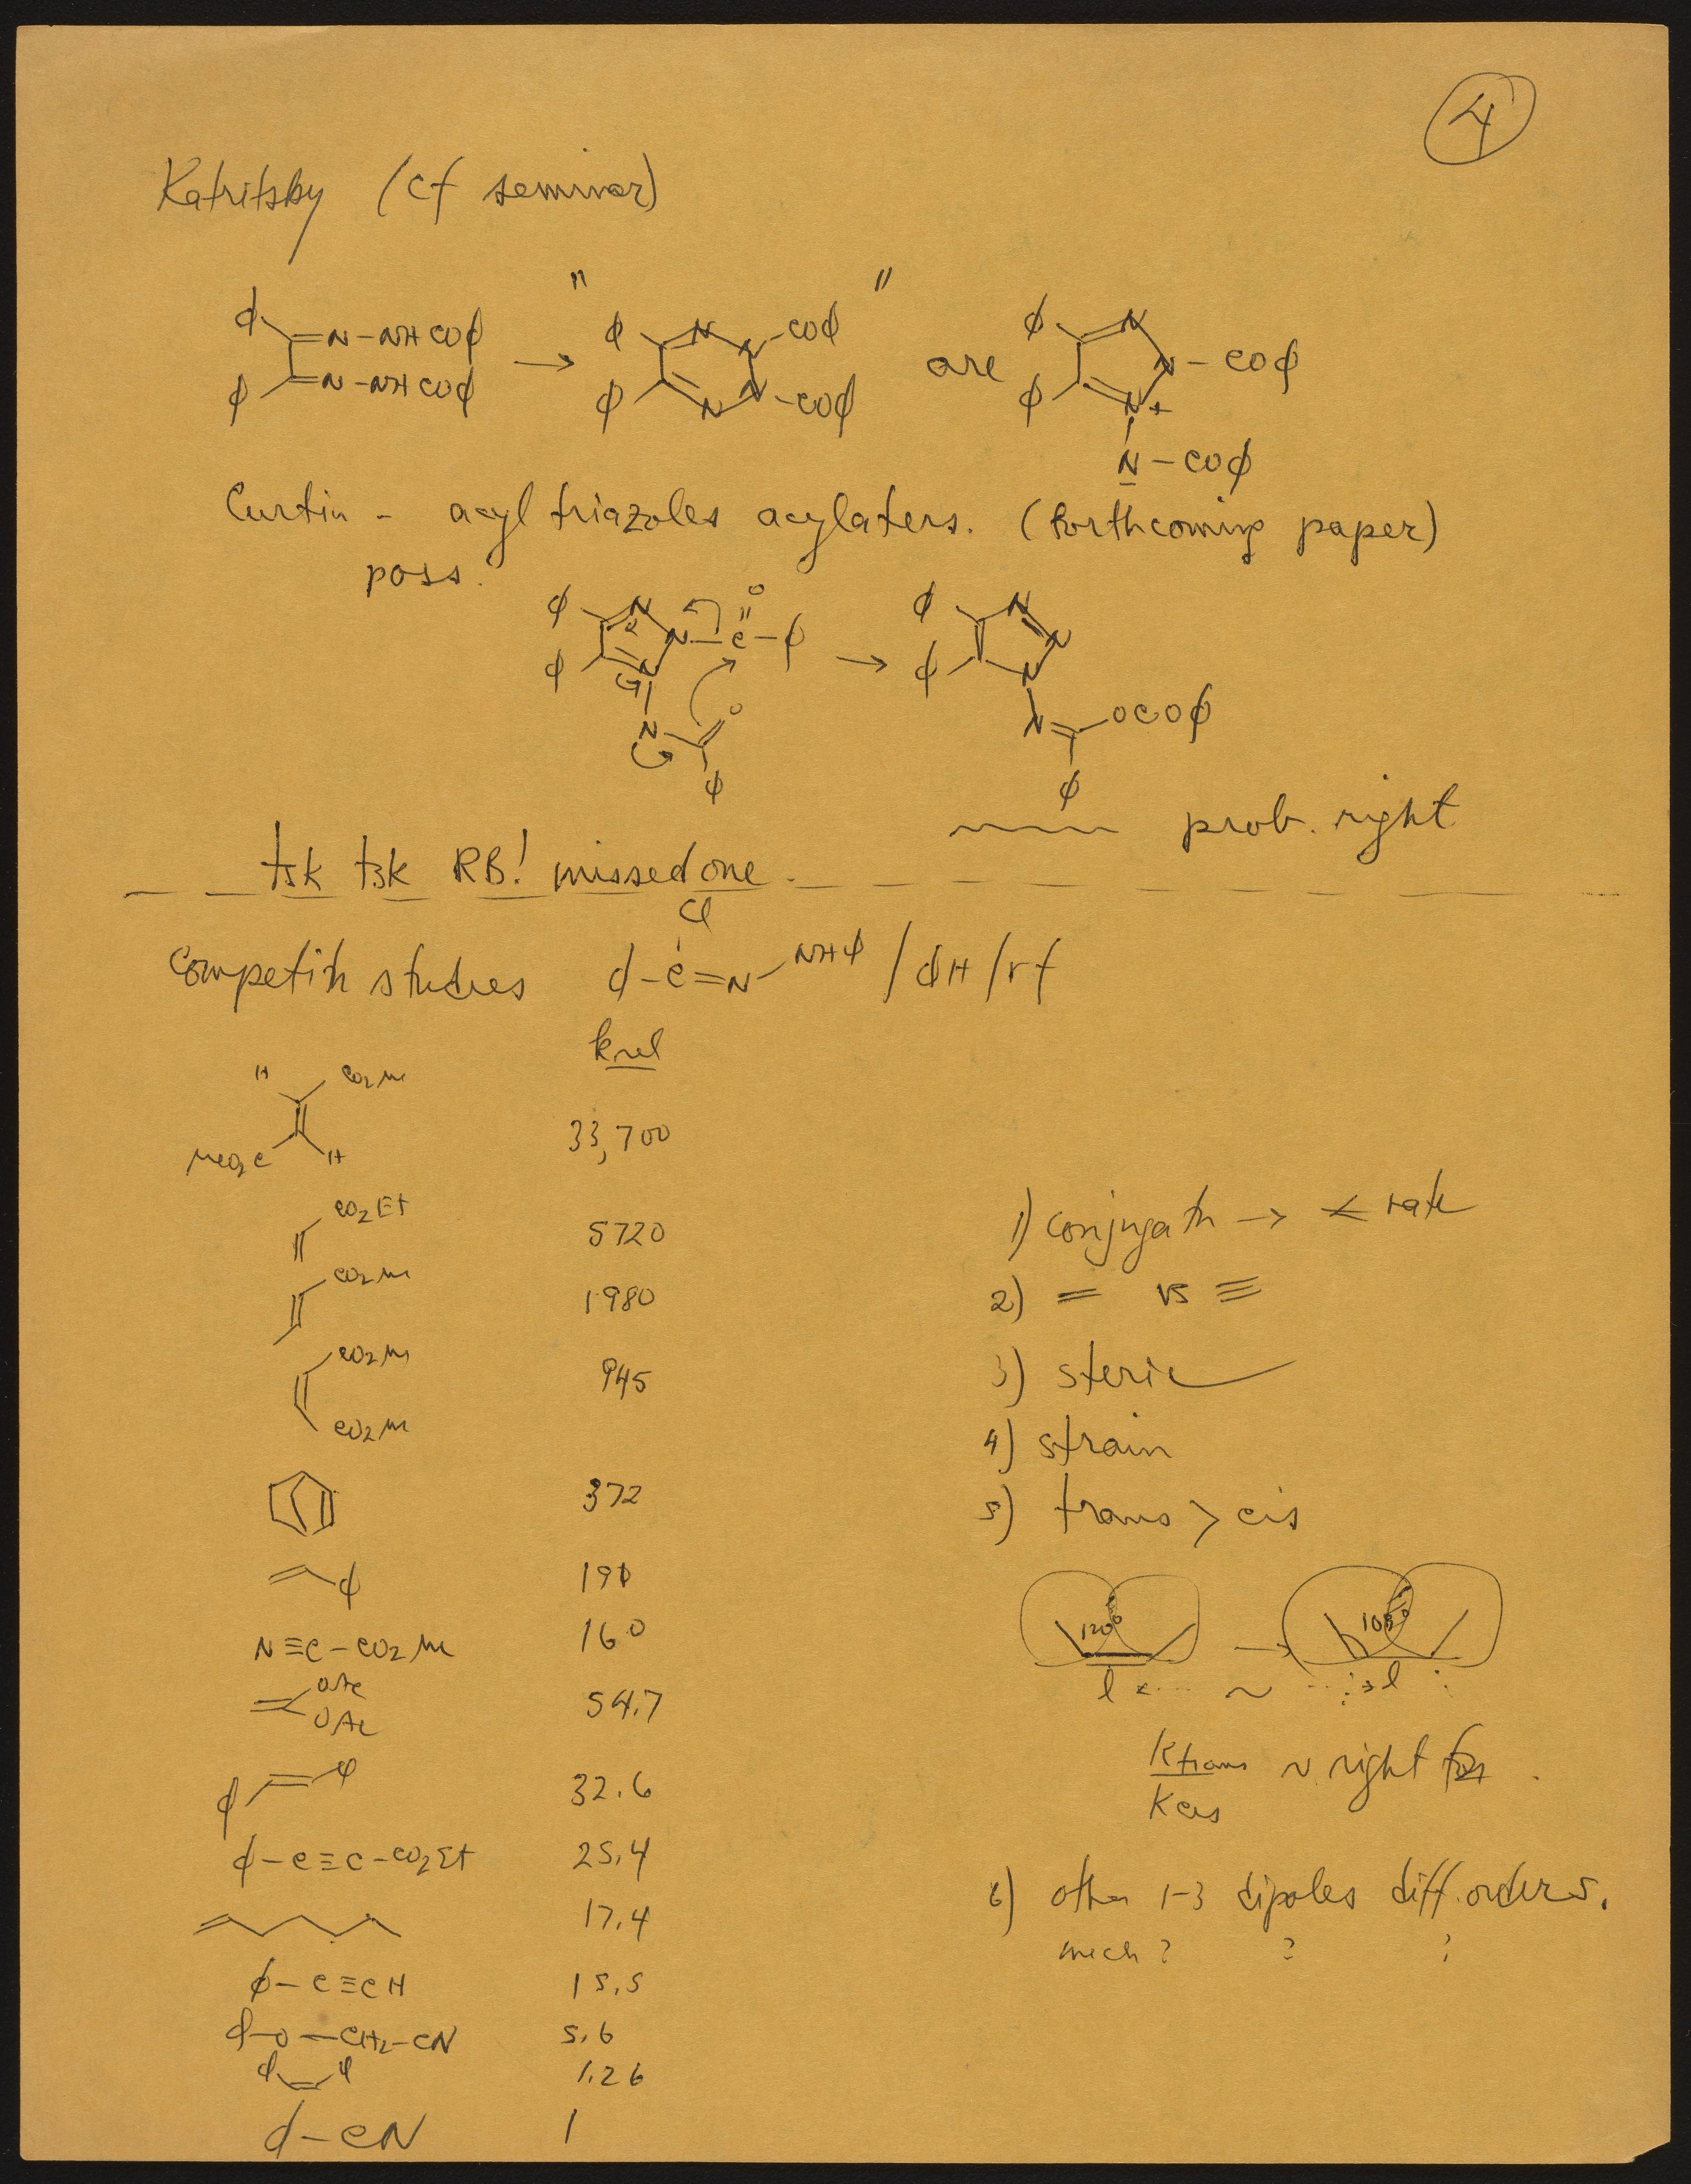 4
Katritsky (cf seminar)
" "
ϕ =N-NHCOϕ → ϕ N N-COϕ are ϕ N N-COϕ
ϕ =N-NHCOϕ ϕ N N-COϕ ϕ N+
N-COϕ
Curtin - acyl triazoles acylaters. (forthcoming paper)
poss.
ϕ N N-C-ϕ O → ϕ N N
ϕ N ϕ N
N O N OCOϕ
ϕ ϕ
prob. right
tsk tsk RB! missed one.
Cl
Competitn studies ϕ-C=N NHϕ /ϕH/rf
krel
H CO2Me
MeO2C H 33,700
CO2Et 5720
CO2Me 1980
CO2Me
CO2Me 945
372
ϕ 191
N≡C-CO2Me 160
OAc
OAc 54.7
ϕ ϕ 32.6
ϕ-C≡C-CO2Et 25.4
17.4
ϕ-C≡CH 15.5
ϕ-O-CH2-CN 5.6
ϕ ϕ 1.26
ϕ-CN 1
1) conjugatn → < rate
2) = vs ≡
3) steric
4) strain
5) trans > cis
120° → 108°
l ~ l
Ktrans ~ right for
Kcis
6) other 1-3 dipoles diff. orders.
mech ? ? ?